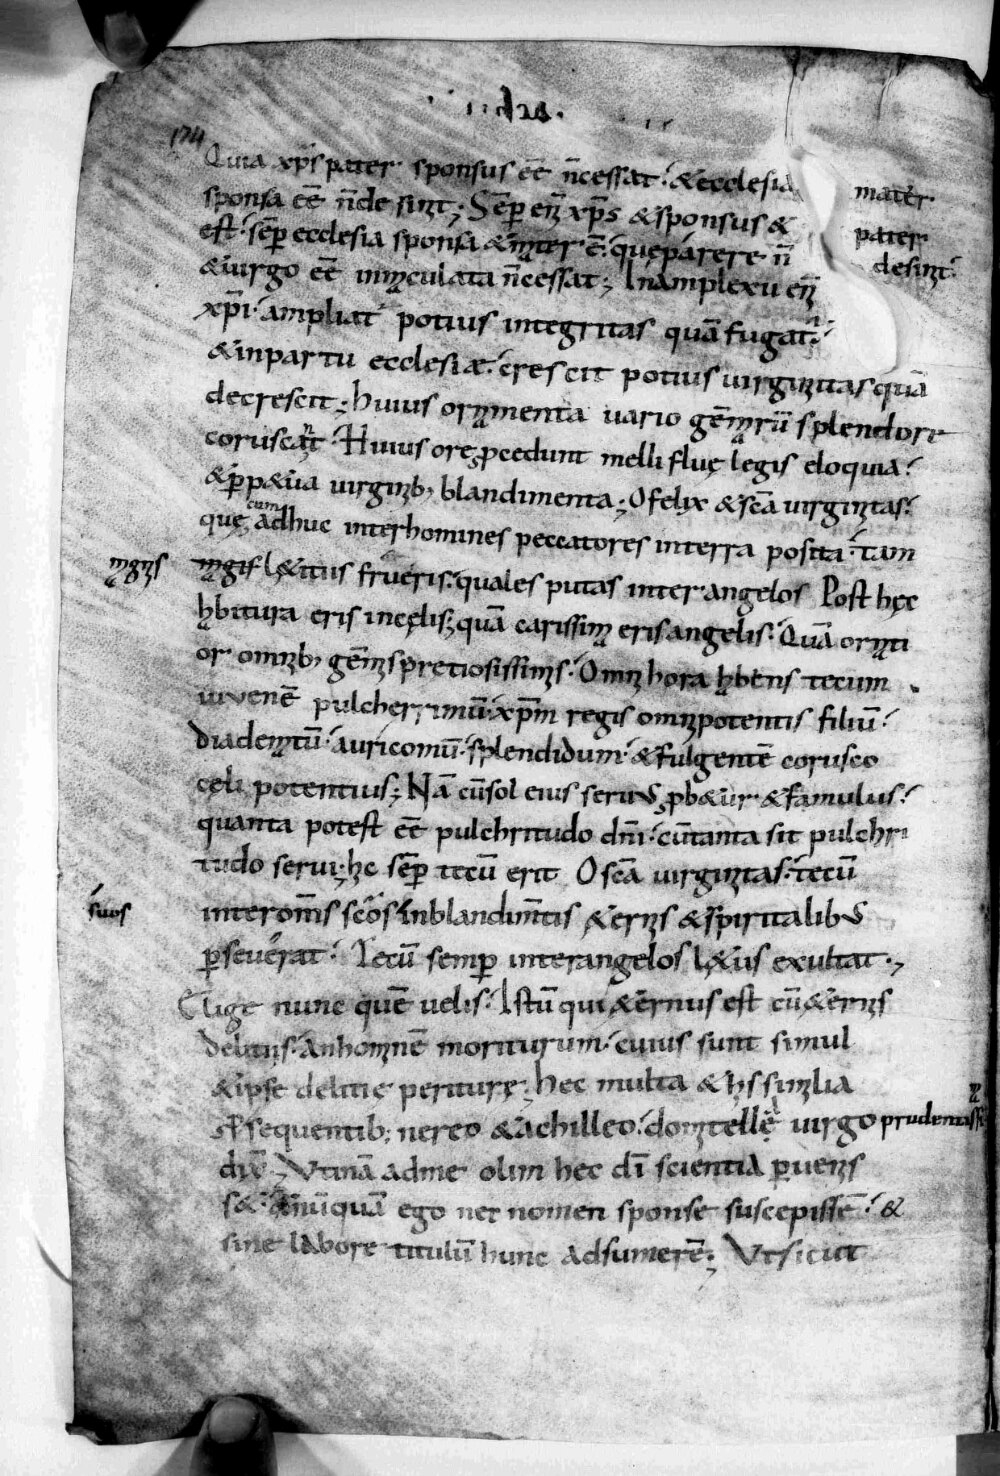 174
Quia xp̄s pater sponsus eē n̄cessat · & ecclesia mater
sponsa eē n̄ desinit ; Sēp enī xp̄s & sponsus & pater
est · sēp ecclesia sponsa & mater ē · que parere n̄ desinit ·
& uirgo eē inmaculata n̄cessat ; In amplexu enī
xp̄i · ampliat potius integritas quā fugat ·
& in partu ecclesiæ · crescit potius uirginitas quā
decrescit ; huius ornamenta uario gēmarū splendore
coruscant · Huius ore procedunt melliflue legis eloquia ·
& perpetua uirginib; blandimenta ; O felix & scā uirginitas ·
que cum adhuc inter homines peccatores in terra posita · tam
magnis magif letitus frueris · quales putas inter angelos Post hec
habitura eris in celis ; quā carissima eris angelis · Quā ornati
or omnib; gēmis pretiosissimis · Omni hora habens tecum
iuvenē pulcherrimū · xp̄m regis omnipotentis filiū ·
diadematū · auricomū · splendidum · & fulgentē corusco
celi potentius ; Nā cū sol eius seruus probetur & famulus ·
quanta potest eē pulchritudo dn̄i · cū tanta sit pulchri
tudo serui ; hic sēp tecū erit O scā uirginitas · tecū
suos inter om̄s sc̄os in blandim̄tis & ernis & spiritalibus
pseuerat · Tecū semp inter angelos letus exultat ·,
Elige nunc quē uelis · Istū qui & ernus est cū & ernis
delitiis · an hominē moriturum · cuius sunt simul
& ipse delitie periture ; hec multa & his similia
prosequentib; nereo & achilleo · domitelle uirgo prudentissi
ma
dix ; Vtinā ad me olim hec dī scientia peruenis
s& · & nūquā ego nec nomen sponse suscepissē · &
sine labore titulū hunc adsumerē ; Vt sicut